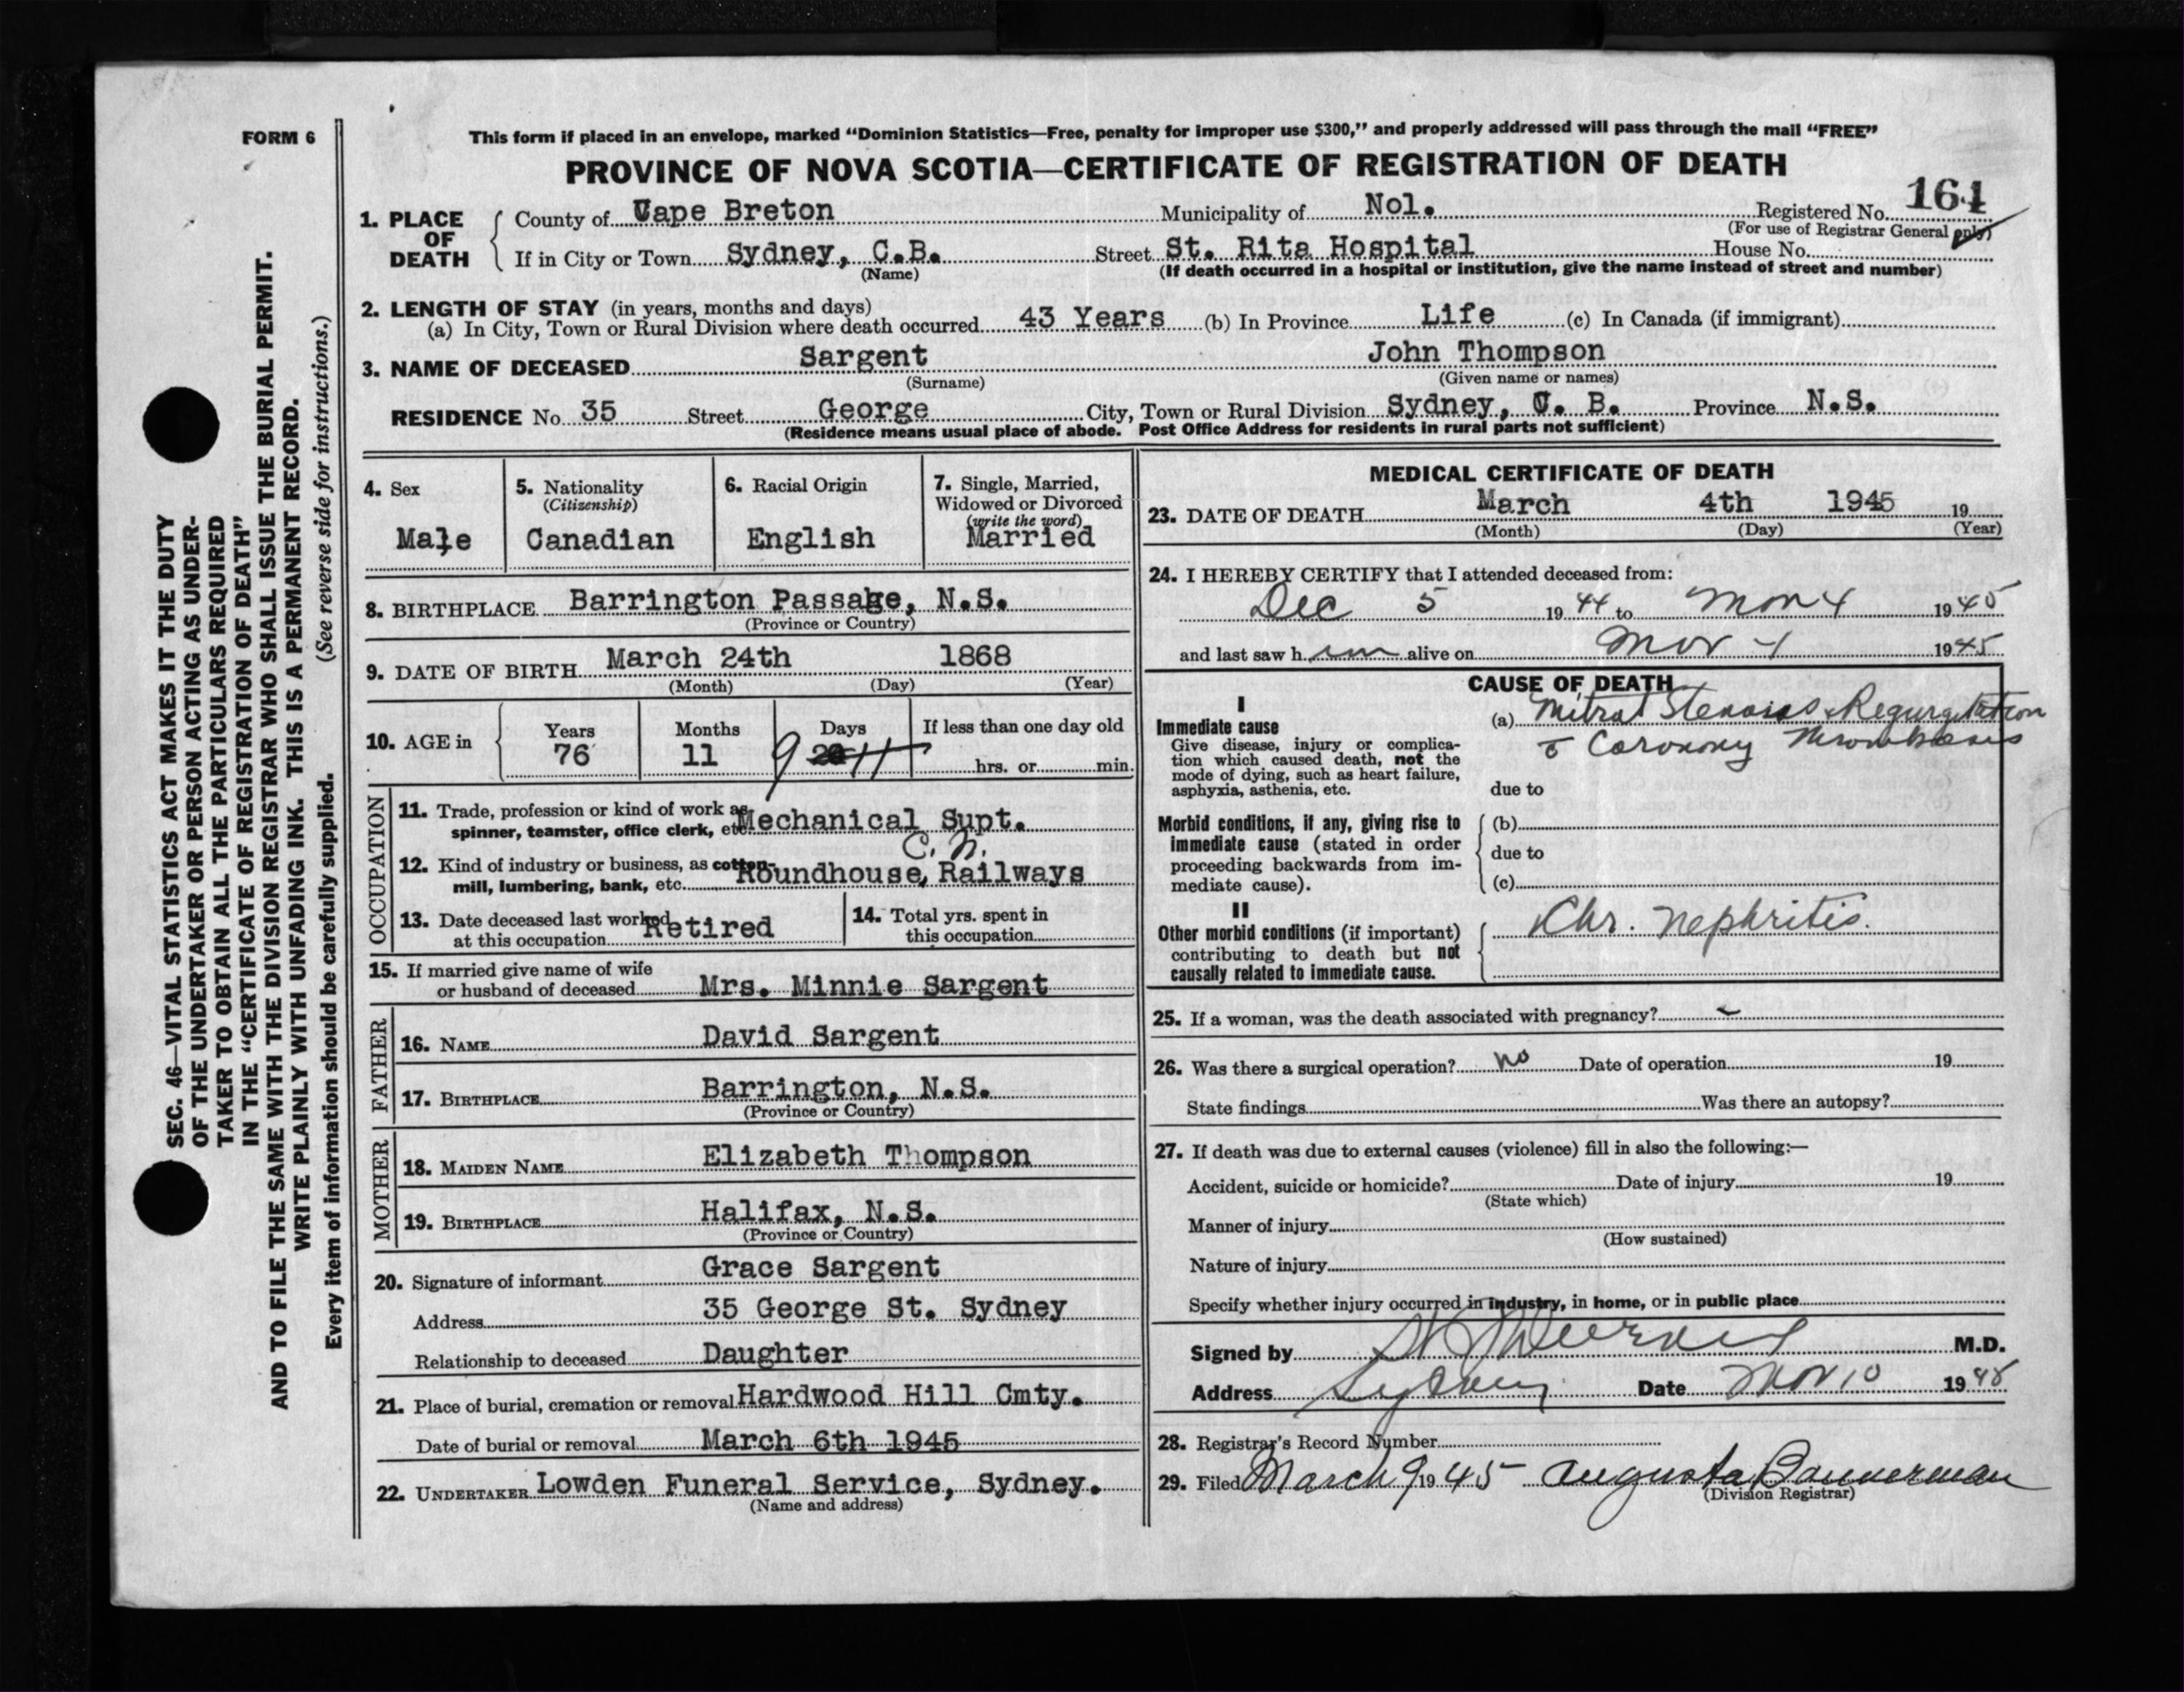 FORM 6
This form if placed in an envelope, marked “Dominion Statistics—Free, penalty for improper use $300,” and properly addressed will pass through the mail “FREE”
PROVINCE OF NOVA SCOTIA—CERTIFICATE OF REGISTRATION OF DEATH
1. PLACE OF DEATH
County of Cape Breton Municipality of No1. Registered No. 161
(For use of Registrar General only)
If in City or Town Sydney, C.B. Street St. Rita Hospital House No.
(Name) (If death occurred in a hospital or institution, give the name instead of street and number)
2. LENGTH OF STAY (in years, months and days)
(a) In City, Town or Rural Division where death occurred 43 Years (b) In Province Life (c) In Canada (if immigrant)
3. NAME OF DECEASED Sargent John Thompson
(Surname) (Given name or names)
RESIDENCE No. 35 Street George City, Town or Rural Division Sydney, C. B. Province N.S.
(Residence means usual place of abode. Post Office Address for residents in rural parts not sufficient)
4. Sex
Male
5. Nationality
(Citizenship)
Canadian
6. Racial Origin
English
7. Single, Married,
Widowed or Divorced
(write the word)
Married
8. BIRTHPLACE Barrington Passage, N.S.
(Province or Country)
9. DATE OF BIRTH March 24th 1868
(Month) (Day) (Year)
10. AGE in
Years Months Days If less than one day old
76 11 9 11 hrs. or min.
OCCUPATION
11. Trade, profession or kind of work as
spinner, teamster, office clerk, etc. Mechanical Supt.
C. N.
12. Kind of industry or business, as cotton-
mill, lumbering, bank, etc. Roundhouse, Railways
13. Date deceased last worked
at this occupation Retired
14. Total yrs. spent in
this occupation
15. If married give name of wife
or husband of deceased Mrs. Minnie Sargent
FATHER
16. NAME David Sargent
17. BIRTHPLACE Barrington, N.S.
(Province or Country)
MOTHER
18. MAIDEN NAME Elizabeth Thompson
19. BIRTHPLACE Halifax, N.S.
(Province or Country)
20. Signature of informant Grace Sargent
Address 35 George St. Sydney
Relationship to deceased Daughter
21. Place of burial, cremation or removal Hardwood Hill Cmty.
Date of burial or removal March 6th 1945
22. UNDERTAKER Lowden Funeral Service, Sydney.
(Name and address)
MEDICAL CERTIFICATE OF DEATH
23. DATE OF DEATH March 4th 1945 19
(Month) (Day) (Year)
24. I HEREBY CERTIFY that I attended deceased from:
Dec 5 19 44 to Mar 4 19 45
and last saw h im alive on Mar 4 19 45
CAUSE OF DEATH
I
Immediate cause
Give disease, injury or complica-
tion which caused death, not the
mode of dying, such as heart failure,
asphyxia, asthenia, etc.
(a) Mitral Stenosis & Regurgitation
c Coronary Thrombosis
due to
Morbid conditions, if any, giving rise to
immediate cause (stated in order
proceeding backwards from im-
mediate cause).
(b)
due to
(c)
II
Other morbid conditions (if important)
contributing to death but not
causally related to immediate cause.
Chr. nephritis.
25. If a woman, was the death associated with pregnancy?
26. Was there a surgical operation? no Date of operation 19
State findings Was there an autopsy?
27. If death was due to external causes (violence) fill in also the following:—
Accident, suicide or homicide? Date of injury 19
(State which)
Manner of injury
(How sustained)
Nature of injury
Specify whether injury occurred in industry, in home, or in public place
Signed by M.D.
Address Sydney Date Mar 10 19
28. Registrar's Record Number
29. Filed March 9 19 45 Augusta Bannerman
(Division Registrar)
SEC. 46—VITAL STATISTICS ACT MAKES IT THE DUTY
OF THE UNDERTAKER OR PERSON ACTING AS UNDER-
TAKER TO OBTAIN ALL THE PARTICULARS REQUIRED
IN THE “CERTIFICATE OF REGISTRATION OF DEATH”
AND TO FILE THE SAME WITH THE DIVISION REGISTRAR WHO SHALL ISSUE THE BURIAL PERMIT.
WRITE PLAINLY WITH UNFADING INK. THIS IS A PERMANENT RECORD.
Every item of information should be carefully supplied. (See reverse side for instructions.)